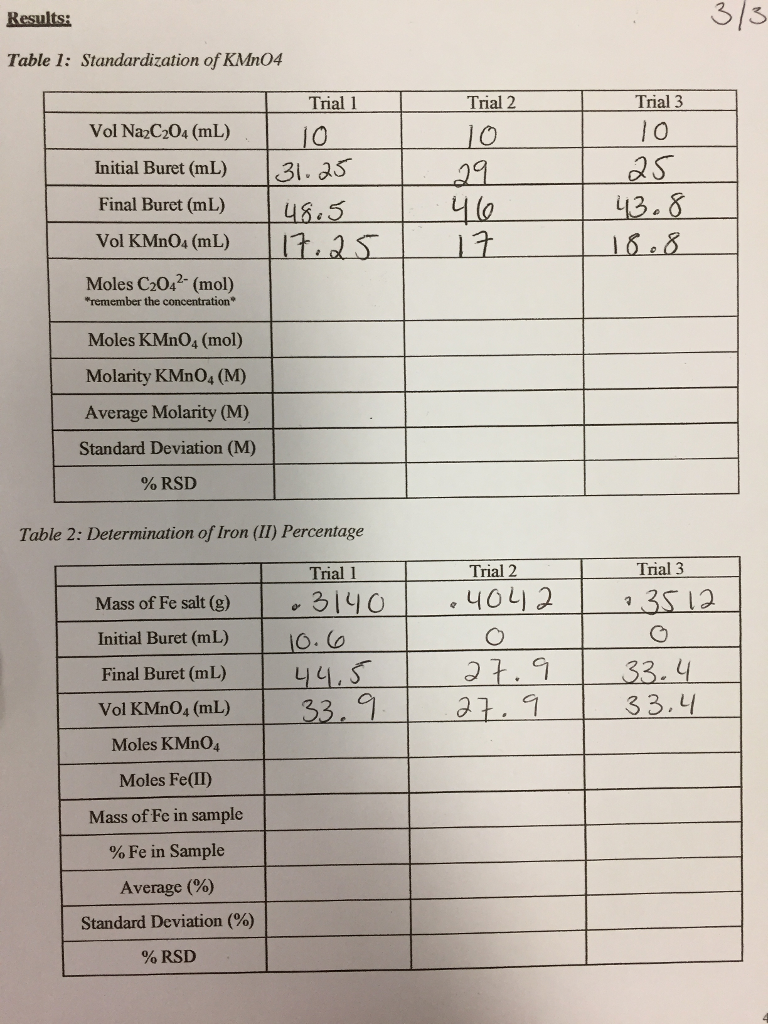 Results:
3/3
Table 1: Standardization of KMnO4
Trial 1 Trial 2 Trial 3
Vol Na₂C₂O₄ (mL) 10 10 10
Initial Buret (mL) 31.25 29 25
Final Buret (mL) 48.5 46 43.8
Vol KMnO₄ (mL) 17.25 17 18.8
Moles C₂O₄²⁻ (mol)
*remember the concentration*
Moles KMnO₄ (mol)
Molarity KMnO₄ (M)
Average Molarity (M)
Standard Deviation (M)
% RSD
Table 2: Determination of Iron (II) Percentage
Trial 1 Trial 2 Trial 3
Mass of Fe salt (g) .3140 .4042 .3512
Initial Buret (mL) 10.6 0 0
Final Buret (mL) 44.5 27.9 33.4
Vol KMnO₄ (mL) 33.9 27.9 33.4
Moles KMnO₄
Moles Fe(II)
Mass of Fe in sample
% Fe in Sample
Average (%)
Standard Deviation (%)
% RSD
4